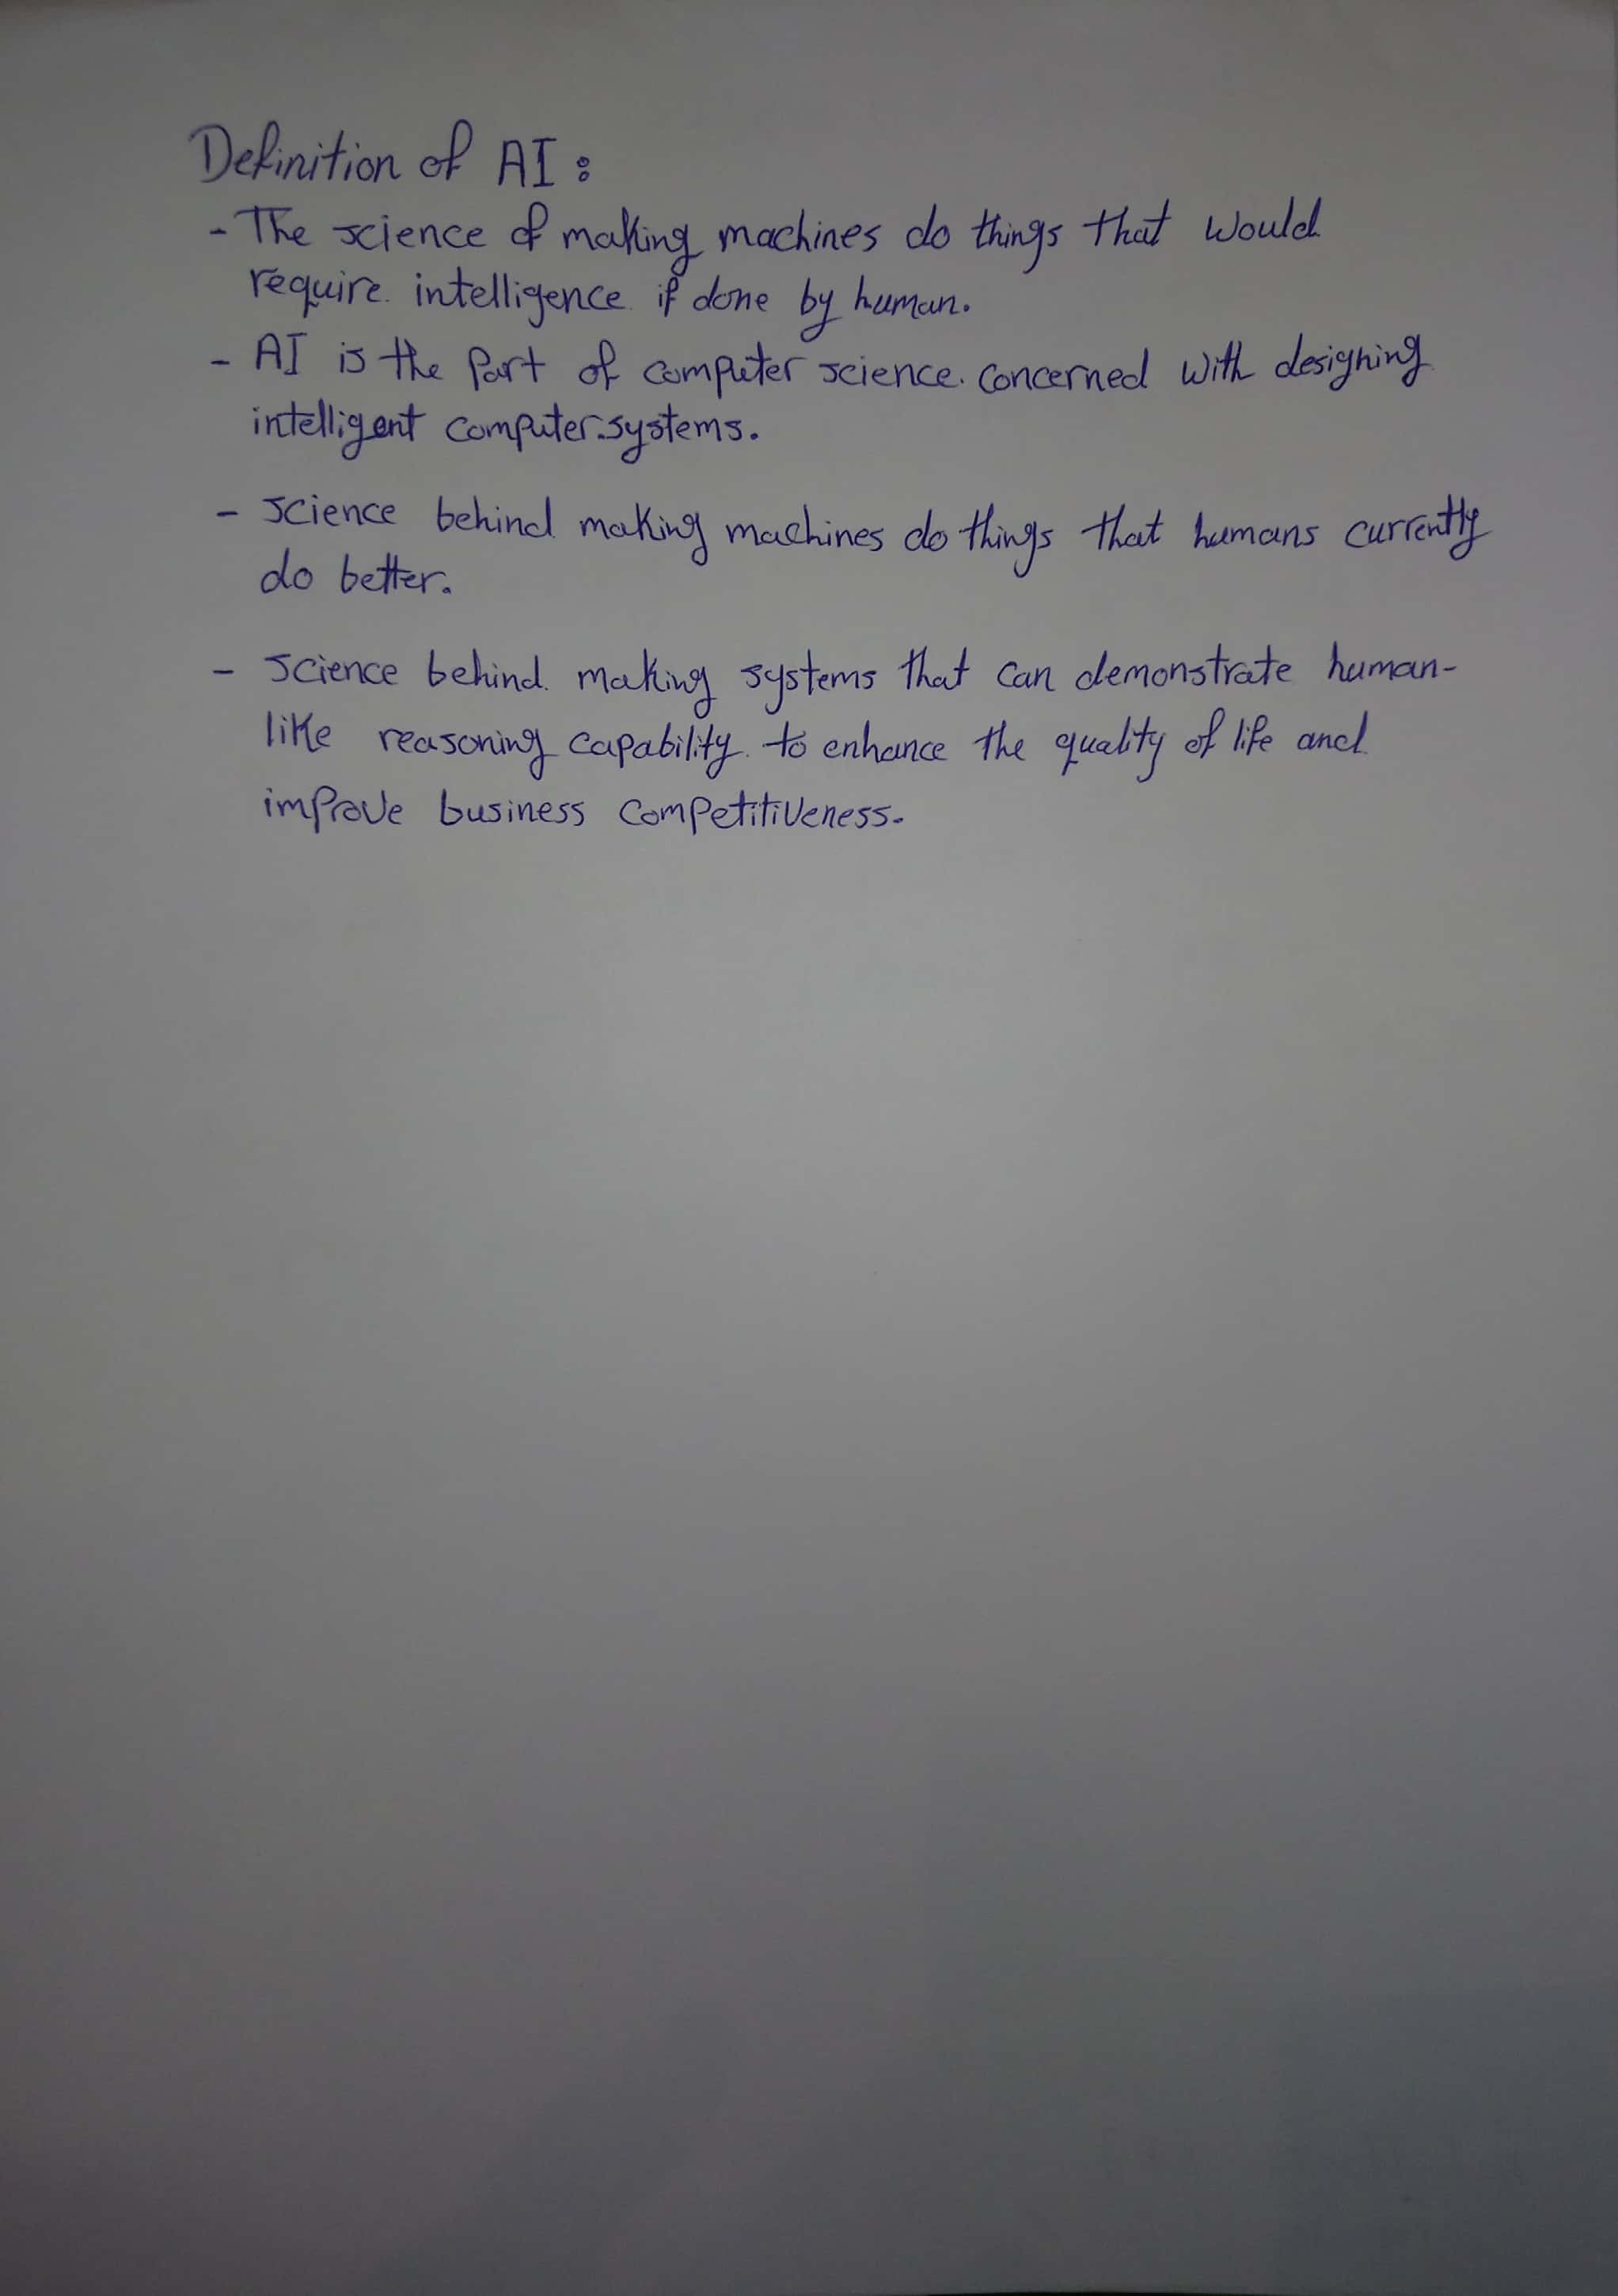 Definition of AI:
- The science of making machines do things that would
require intelligence if done by human.
- AI is the part of computer science concerned with designing
intelligent computer systems.
- science behind making machines do things that humans currently
do better.
- science behind making systems that can demonstrate human-
like reasoning capability to enhance the quality of life and
improve business competitiveness.